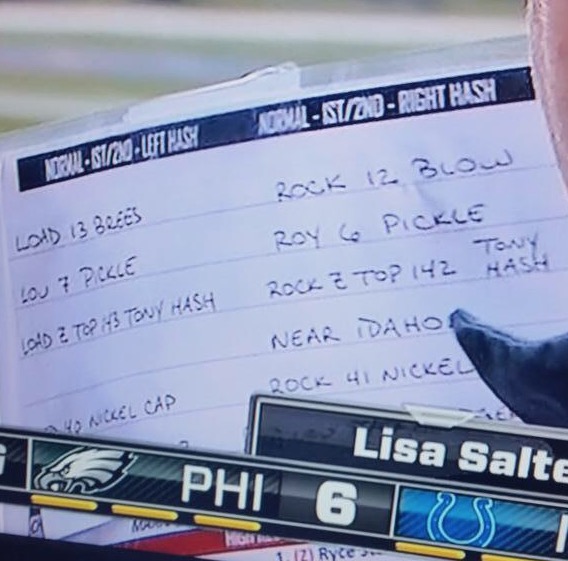 NORMAL - 1ST/2ND - LEFT HASH
NORMAL - 1ST/2ND - RIGHT HASH
LOAD 13 BREES
LOU 7 PICKLE
LOAD Z TOP 143 TONY HASH
40 NICKEL CAP
ROCK 12 BLOW
ROY 6 PICKLE
ROCK Z TOP 142 TONY HASH
NEAR IDAHO
ROCK 41 NICKEL
Lisa Salte
PHI 6
1. (2) Ryce